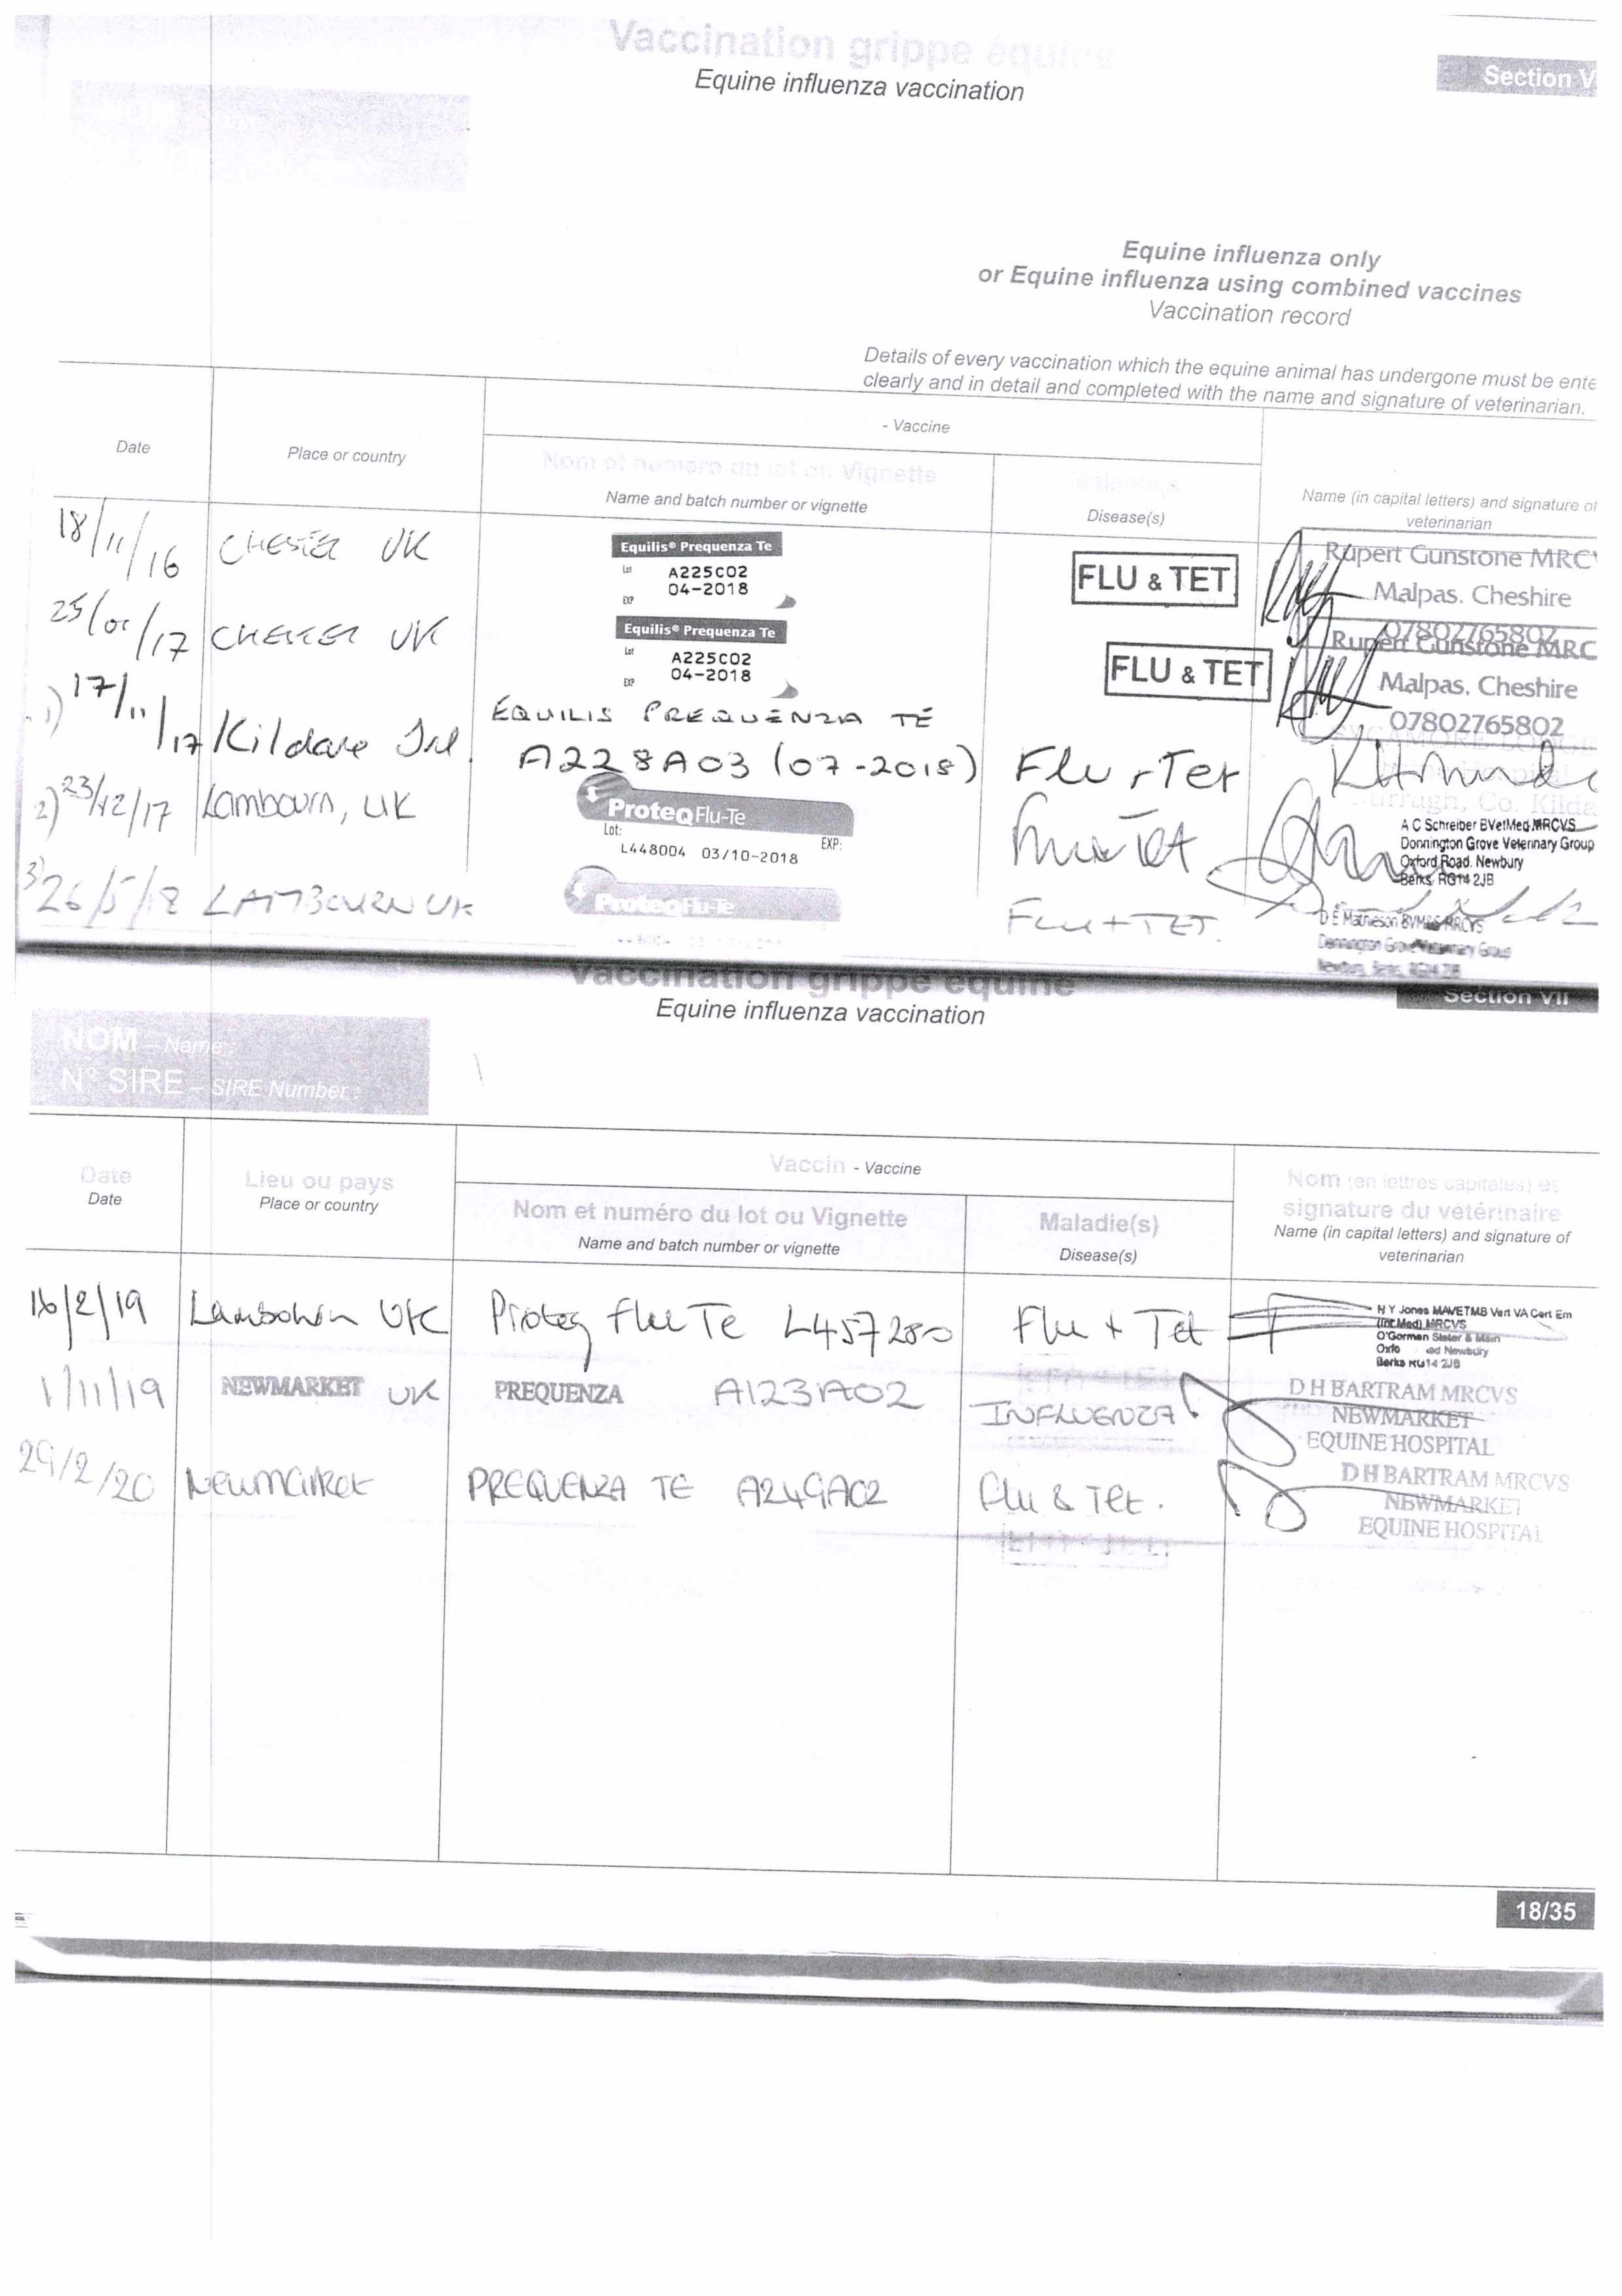 Vaccination grippe équine
Equine influenza vaccination
Section V
NOM
Equine influenza only
or Equine influenza using combined vaccines
Vaccination record
Details of every vaccination which the equine animal has undergone must be ente
clearly and in detail and completed with the name and signature of veterinarian.
- Vaccine
Date
Place or country
Nom et numéro du lot ou Vignette
Name and batch number or vignette
Maladie(s)
Disease(s)
Name (in capital letters) and signature of
veterinarian
18/11/16 CHESTER UK
Equilis® Prequenza Te
Lot A225C02
EXP 04-2018
FLU & TET
Rupert Gunstone MRC
Malpas. Cheshire
07802765802
25/01/17 CHESTER UK
Equilis® Prequenza Te
Lot A225C02
EXP 04-2018
FLU & TET
Rupert Gunstone MRC
Malpas. Cheshire
07802765802
1) 17/11/17 Kildare Irl.
EQUILIS PREQUENZA TE
A228A03 (07-2018)
Flu + Tet
2) 23/12/17 Lambourn, UK
ProteqFlu-Te
Lot: EXP:
L448004 03/10-2018
A C Schreiber BVetMed MRCVS
Donnington Grove Veterinary Group
Oxford Road. Newbury
Berks. RG14 2JB
3) 26/5/18 LAMBOURN UK
ProteqFlu-Te
FLU + TET.
D E Mathieson BVM&S MRCVS
Donnington Grove Veterinary Group
Newbury, Berks, RG14 2JB
Vaccination grippe équine
Equine influenza vaccination
Section VII
NOM – Name :
N° SIRE – SIRE Number :
Date
Date
Lieu ou pays
Place or country
Vaccin - Vaccine
Nom et numéro du lot ou Vignette
Name and batch number or vignette
Maladie(s)
Disease(s)
Nom (en lettres capitales) et
signature du vétérinaire
Name (in capital letters) and signature of
veterinarian
16/2/19 Lambourn UK Proteq Flu Te L457280 Flu + Tet
N Y Jones MAVETMB Vert VA Cert Em
(Int Med) MRCVS
O'Gorman Slater & Main
Oxfo ad Newbury
Berks RG14 2JB
1/11/19 NEWMARKET UK PREQUENZA A123A02 INFLUENZA
D H BARTRAM MRCVS
NEWMARKET
EQUINE HOSPITAL
29/2/20 Newmarket PREQUENZA TE A249A02 Flu & Tet.
D H BARTRAM MRCVS
NEWMARKET
EQUINE HOSPITAL
18/35